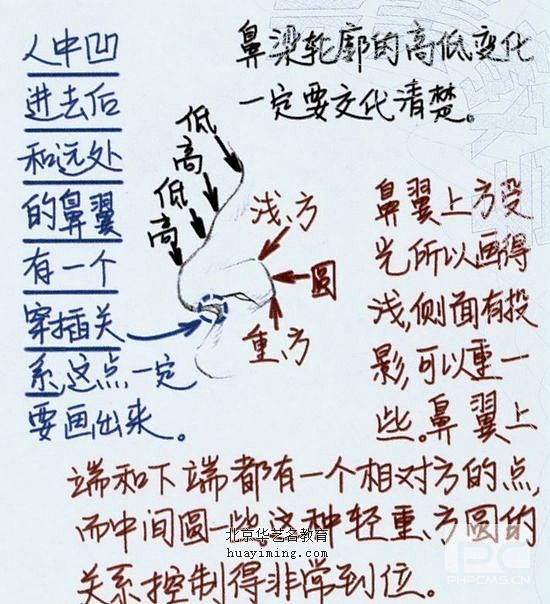 人中凹
进去后
和远处
的鼻翼
有一个
穿插关
系,这点一定
要画出来。
鼻梁轮廓的高低变化
一定要交代清楚。
低
高
低
高
浅、方
圆
重、方
鼻翼上方受
光所以画得
浅,侧面有投
影,可以重一
些。鼻翼上
端和下端都有一个相对方的点,
而中间圆一些。这种轻重、方圆的
关系控制得非常到位。
北京华艺名教育
huayiming.com
PHPCMS.CN